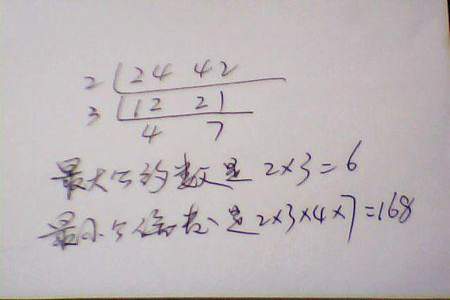 2 24 42
3 12 21
4 7
最大公约数是 2×3=6
最小公倍数是2×3×4×7=168